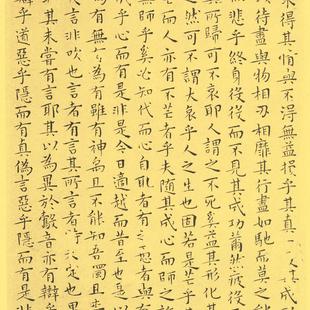 求得其情與不得無益損乎其真一其成
以待盡與物相刃相靡其行盡如馳而莫之能
悲乎終身役役而不見其成功苶然疲役
其所歸可不哀耶人謂之不死奚益其形化
之然可不謂大哀乎人之生也固若是芒乎
芒而人亦有不芒者乎夫隨其成心而師之
無師乎奚必知代而心自取者有之愚者與有
乎心而有是非是今日適越而昔至
無有為有雖有神禹且不能知吾獨且
言非吹也言者有言其所言者特未定也果
其未嘗有言耶其以為異於鷇音亦有辯
辯乎道惡乎隱而有真偽言惡乎隱而有是非